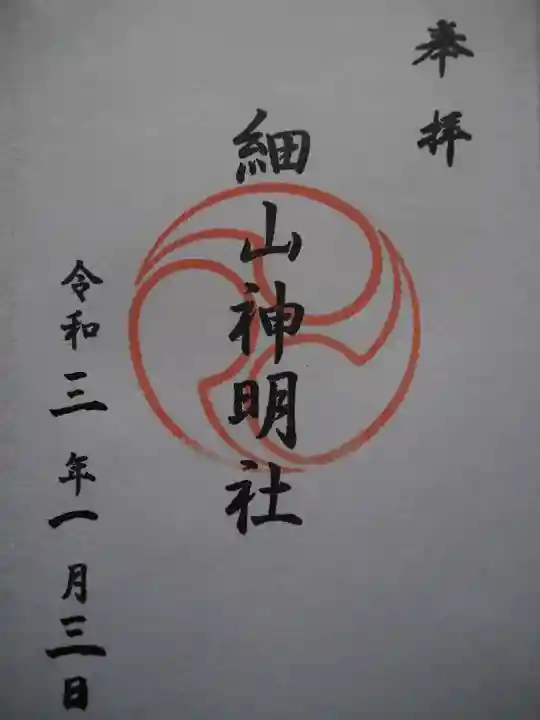 奉拝
細山神明社
令和三年一月三日